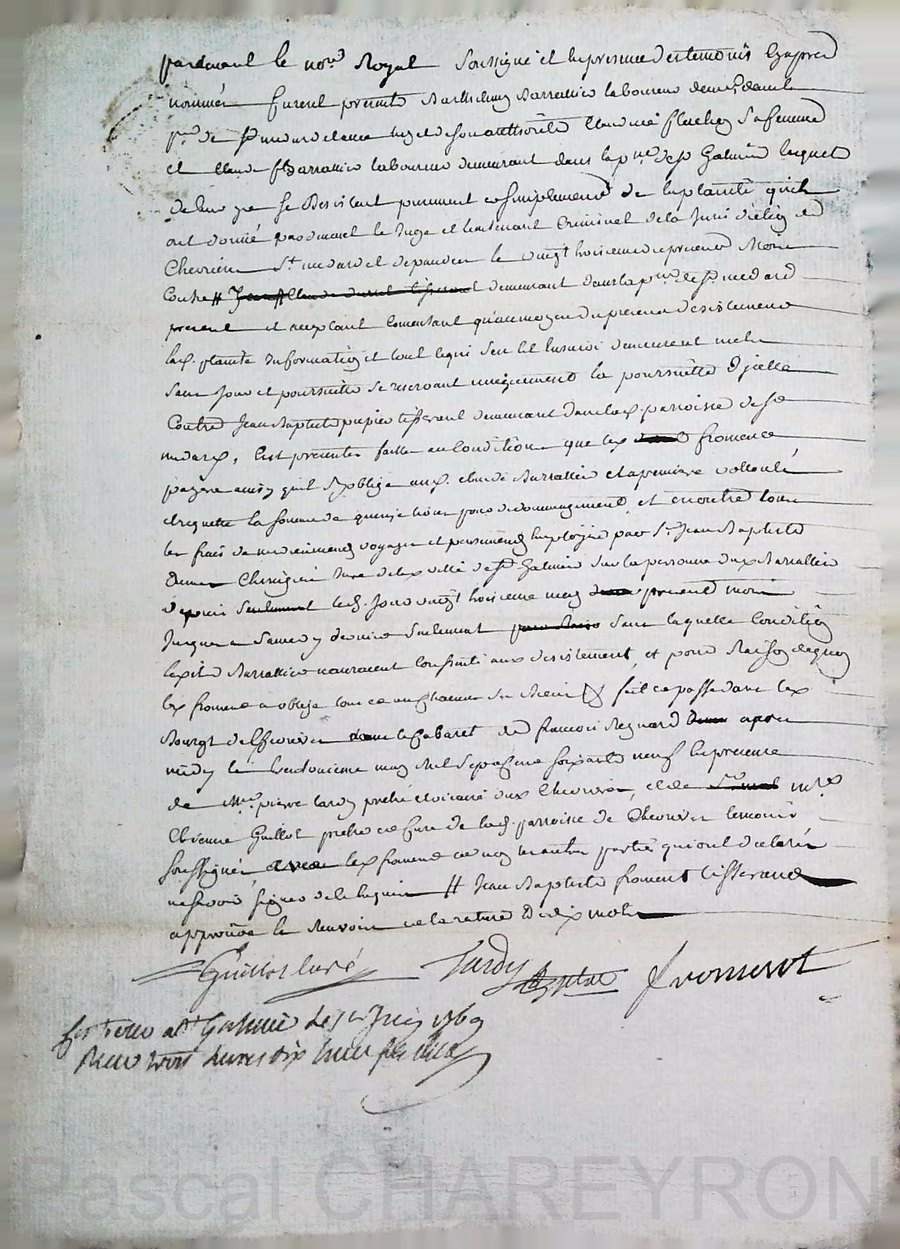 pardevant le no.re Royal soussigné et en presence des temoins cy apres
nommés furent présents Barthelemy Barrallier laboureur demeu.t dans la
p.sse de S.t medard et de son authorité Claudine flachey sa femme
et Claude Barrallier laboureur demeurant dans la p.sse de S.t Galmier lesquels
de leur gré se desistent purement et simplement de la plainte quils
ont donné pardevant le Juge et lieutenant Criminel de la Jurisdiction de
Chevrieres S.t medard et le vingt troisieme du present Mois
Contre # demeurant dans la p.sse de S.t medard
present et acceptant Consentant qu'au moyen du present desistement
lad. plainte information et tout ce qui s'en est ensuivi demeurent nulle
sans et poursuitte se reservant uniquement la poursuitte d'icelle
Contre Jean Baptiste papier tisserand demeurant dans lad. parroisse de S.t
medard, C'est présentes faittes au Condition que led. froment
payera ainsy quil s'oblige aux d. Claude Barrallier et a premiere vollonté
et requette la somme de quinze livres pour dedomagement, et en outre tous
les frais de medicaments voyages et pansements employés par S.r Jean Baptiste
Chirurgien Juré de lad. ville de S.t Galmier sur la personne dud. Barrallier
depuis seulement led. Jour vingt troisieme may present mois
Jusques a samedy dernier seulement sans laquelle Condition
lesd. Barrallier n'auroient Consenti aud. desistement, et pour Raison de quoy
led. froment a obligé tous et un chacun ses biens fait et passé dans led.
Bourgt de Chevrieres dans le Cabaret de francois Reynard apres
midy le may Mil Sept cent soixante neuf En presence
de M.re pierre tardy pretre et vicaire dud. Chevrieres, et de M.re
Etienne Guillot pretre et Cure de lad. parroisse de Chevrieres temoins
soussignés avec led. froment et non les autres parties qui ont declaré
ne scavoir signer de ce enquis # Jean Baptiste froment tisserand
approuve le Renvoy et la rature de dix mots
Guillot curé Tardy fromenot
a S.t Galmier le Juin 1769
Reçu trois livres dix
Pascal CHAREYRON